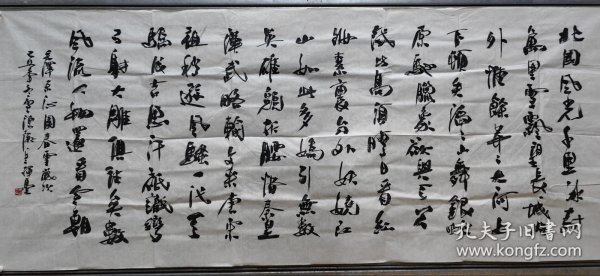 北国风光千里冰封
万里雪飘望长城内
外惟余莽莽大河上
下顿失滔滔山舞银蛇
原驰腊象欲与天公
试比高须晴日看红
妆素裹分外妖娆江
山如此多娇引无数
英雄竞折腰惜秦皇
汉武略输文采唐宗
祖稍逊风骚一代天
骄成吉思汗只识弯
弓射大雕俱往矣数
风流人物还看今朝
毛泽东沁园春雪
孔夫子旧书网
www.kongfz.com